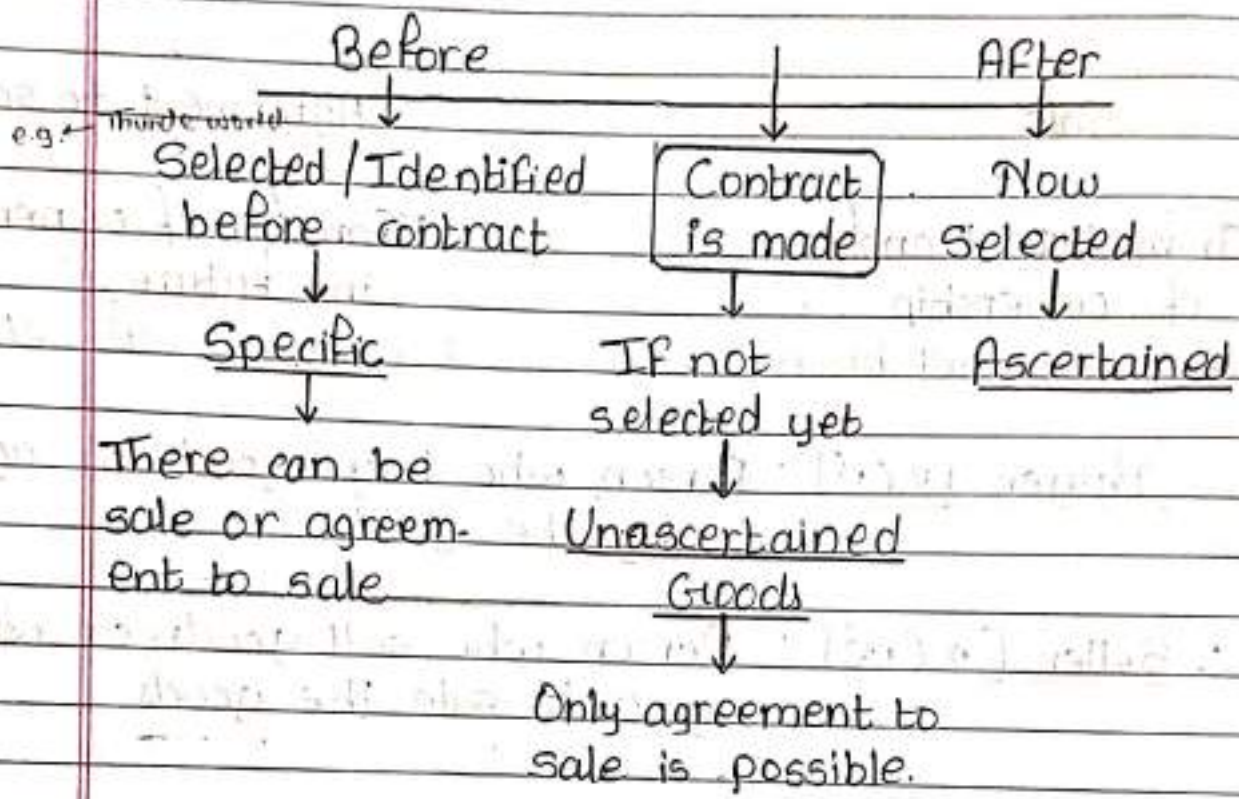 Before After
e.g.
Selected / Identified
before contract
Contract
is made
Now
Selected
Specific
If not
selected yet
Ascertained
There can be
sale or agreem-
ent to sale
Unascertained
Goods
Only agreement to
sale is possible.